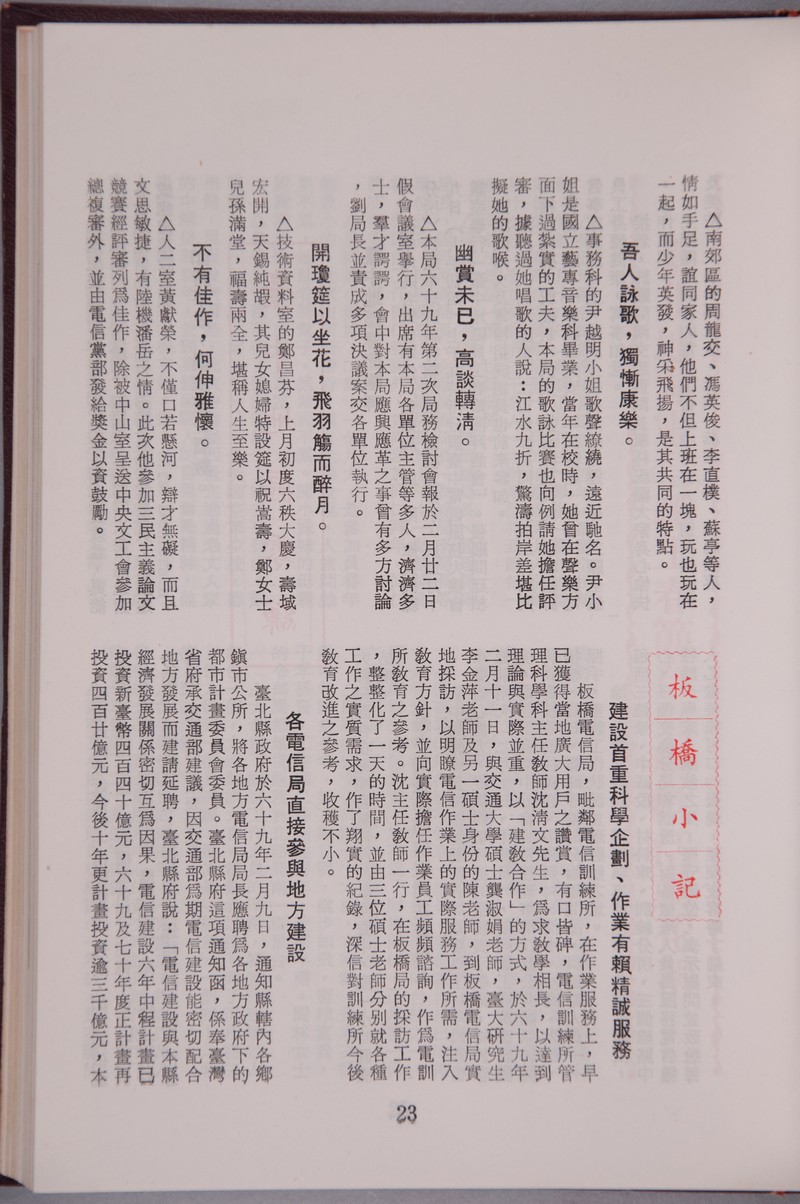 △南郊區的周龍交、馮英俊、李直樸、蘇亭等人，
情如手足，誼同家人，他們不但上班在一塊，玩也玩在
一起，而少年英發，神采飛揚，是其共同的特點。
吾人詠歌，獨慚康樂。
△事務科的尹越明小姐歌聲繚繞，遠近馳名。尹小
姐是國立藝專音樂科畢業，當年在校時，她曾在聲樂方
面下過紮實的工夫，本局的歌詠比賽也向例請她擔任評
審，據聽過她唱歌的人說：江水九折，驚濤拍岸差堪比
擬她的歌喉。
幽賞未已，高談轉淸。
△本局六十九年第二次局務檢討會報於二月廿二日
假會議室舉行，出席有本局各單位主管等多人，濟濟多
士，羣才諤諤，會中對本局應興應革之事曾有多方討論
，劉局長並責成多項決議案交各單位執行。
開瓊筵以坐花，飛羽觴而醉月。
△技術資料室的鄭昌芬，上月初度六秩大慶，壽域
宏開，天錫純嘏，其兒女媳婦特設筵以祝嵩壽，鄭女士
兒孫滿堂，福壽兩全，堪稱人生至樂。
不有佳作，何伸雅懷。
△人二室黃獻榮，不僅口若懸河，辯才無礙，而且
文思敏捷，有陸機潘岳之情。此次他參加三民主義論文
競賽經評審列爲佳作，除被中山室呈送中央文工會參加
總複審外，並由電信黨部發給獎金以資鼓勵。
板橋小記
建設首重科學企劃、作業有賴精誠服務
板橋電信局，毗鄰電信訓練所，在作業服務上，早
已獲得當地廣大用戶之讚賞，有口皆碑，電信訓練所管
理科學科主任敎師沈淸文先生，爲求敎學相長，以達到
理論與實際並重，以「建敎合作」的方式，於六十九年
二月十一日，與交通大學碩士龔淑娟老師，臺大硏究生
李金萍老師及另一碩士身份的陳老師，到板橋電信局實
地採訪，以明瞭電信作業上的實際服務工作所需，注入
敎育方針，並向實際擔任作業員工頻頻諮詢，作爲電訓
所敎育之參考。沈主任敎師一行，在板橋局的採訪工作
，整整化了一天的時間，並由三位碩士老師分別就各種
工作之實質需求，作了翔實的紀錄，深信對訓練所今後
敎育改進之參考，收穫不小。
各電信局直接參與地方建設
臺北縣政府於六十九年二月九日，通知縣轄內各鄉
鎮市公所，將各地方電信局局長應聘爲各地方政府下的
都市計畫委員會委員。臺北縣府這項通知函，係奉臺灣
省府承交通部建議，因交通部爲期電信建設能密切配合
地方發展而建請延聘，臺北縣府說：「電信建設與本縣
經濟發展關係密切互爲因果，電信建設六年中程計畫已
投資新臺幣四百四十億元，六十九及七十年度正計畫再
投資四百廿億元，今後十年更計畫投資逾三千億元，本
23